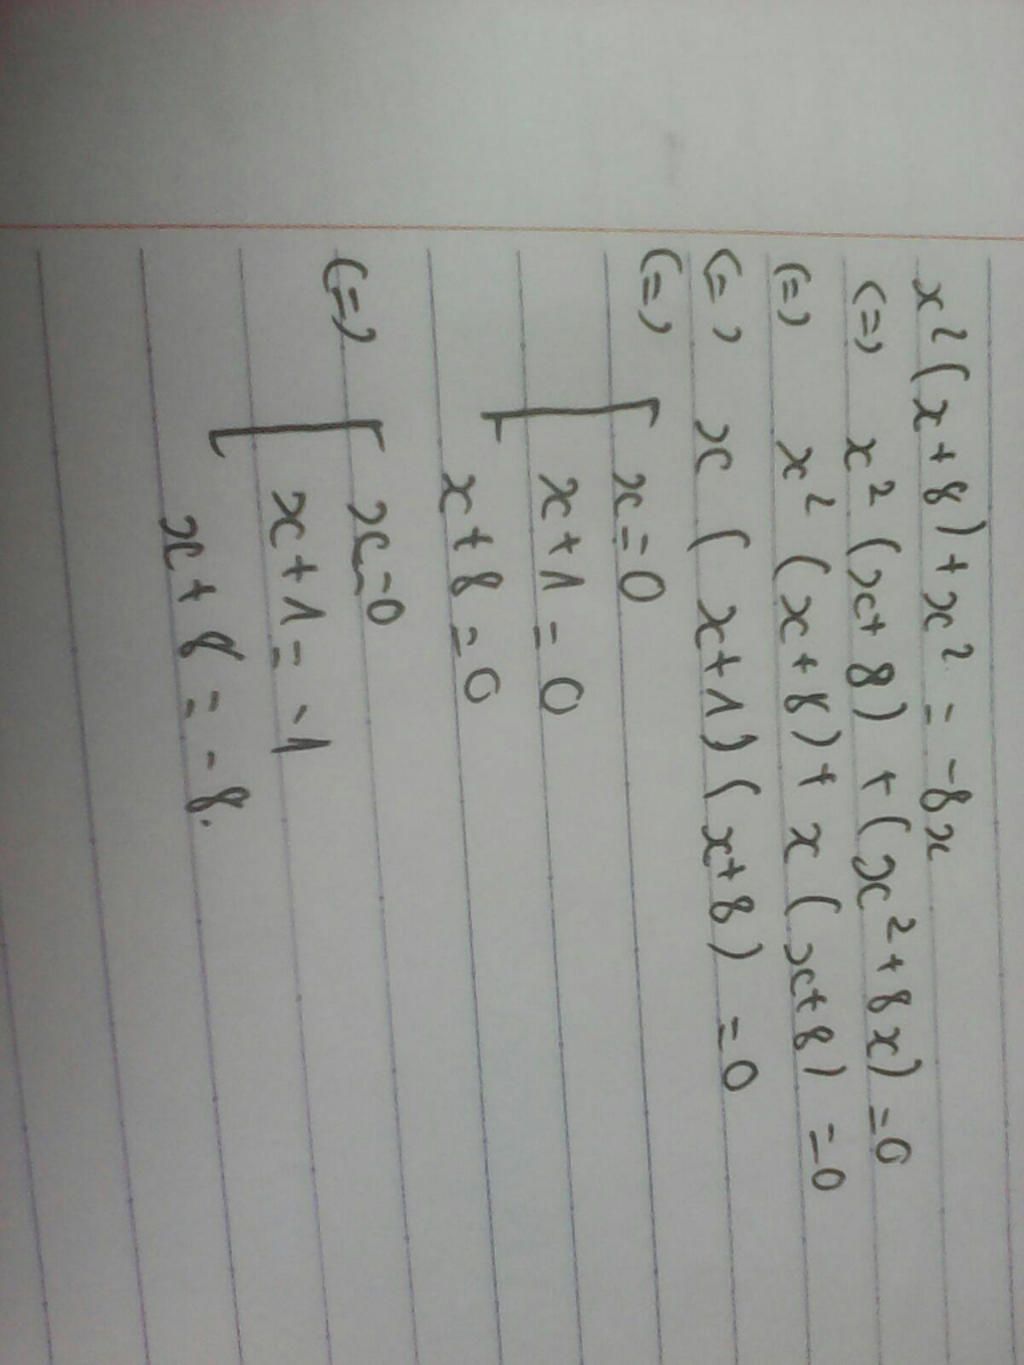 x² (x + 8) + x² = -8x
(=) x² (x + 8) + (x² + 8x) = 0
(=) x² (x + 8) + x (x + 8) = 0
(=) x (x + 1) (x + 8) = 0
(=) [ x = 0
x + 1 = 0
x + 8 = 0
(=) [ x = 0
x + 1 = -1
x + 8 = -8.